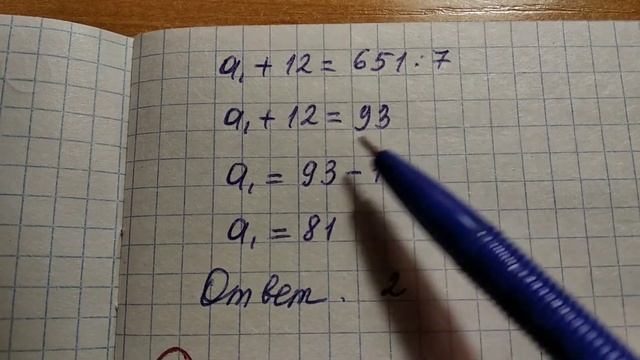 a₁ + 12 = 651 : 7
a₁ + 12 = 93
a₁ = 93 -
a₁ = 81
Ответ. 2